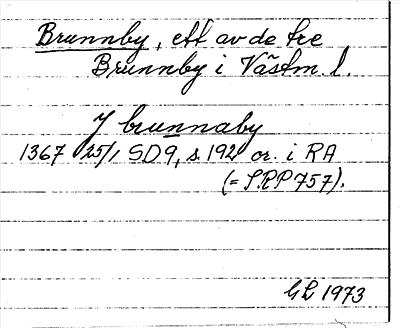 Brunnby, ett av de tre
Brunnby i Västm. l.
J brunnaby
1367 25/1 SD9, s. 192 or. i RA
(= SRPP 757).
GL 1973